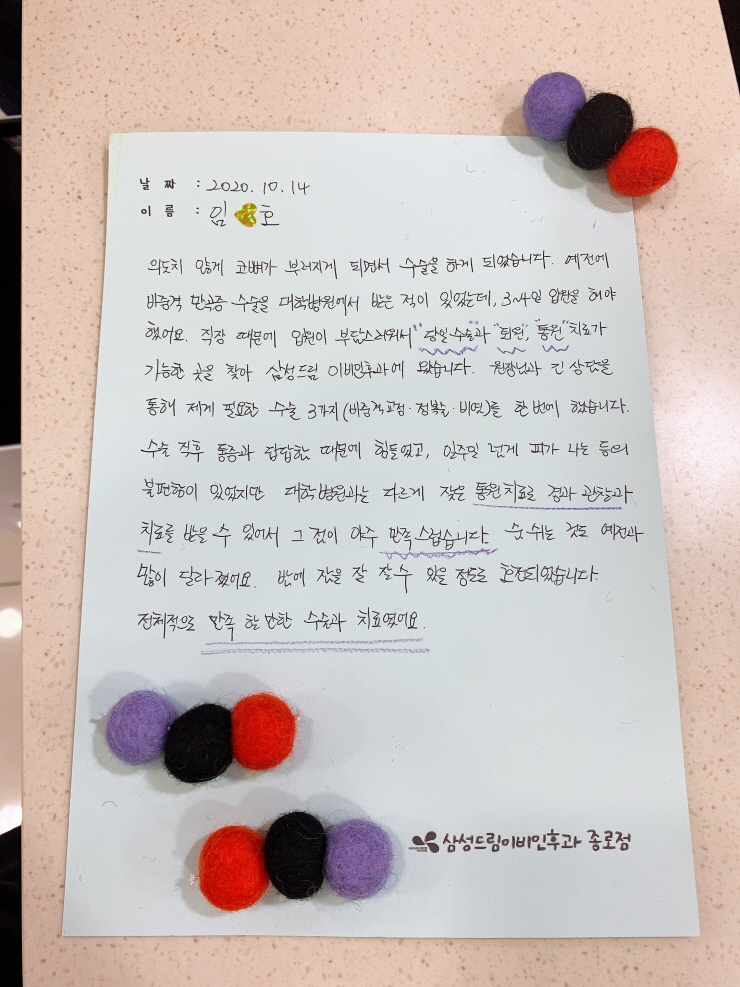 날 짜 : 2020.10.14
이 름 : 임 호
의도치 않게 코뼈가 부러지게 되면서 수술을 하게 되었습니다. 예전에
비중격 만곡증 수술을 대학병원에서 받은 적이 있었는데, 3~4일 입원을 해야
했어요. 직장 때문에 입원이 부담스러워서 "당일 수술"과 "퇴원", "통원"치료가
가능한 곳을 찾아 삼성드림 이비인후과에 왔습니다. 원장님과 긴 상담을
통해 제게 필요한 수술 3가지(비중격교정·정복술·비염)를 한 번에 했습니다.
수술 직후 통증과 답답함 때문에 힘들었고, 일주일 넘게 피가 나는 등의
불편함이 있었지만 대학병원과는 다르게 잦은 통원치료로 경과 관찰과
치료를 받을 수 있어서 그 점이 아주 만족스럽습니다. 숨 쉬는 것도 예전과
많이 달라졌어요. 밤에 잠을 잘 잘 수 있을 정도로 호전되었습니다.
전체적으로 만족 할 만한 수술과 치료였어요.
삼성드림이비인후과 종로점